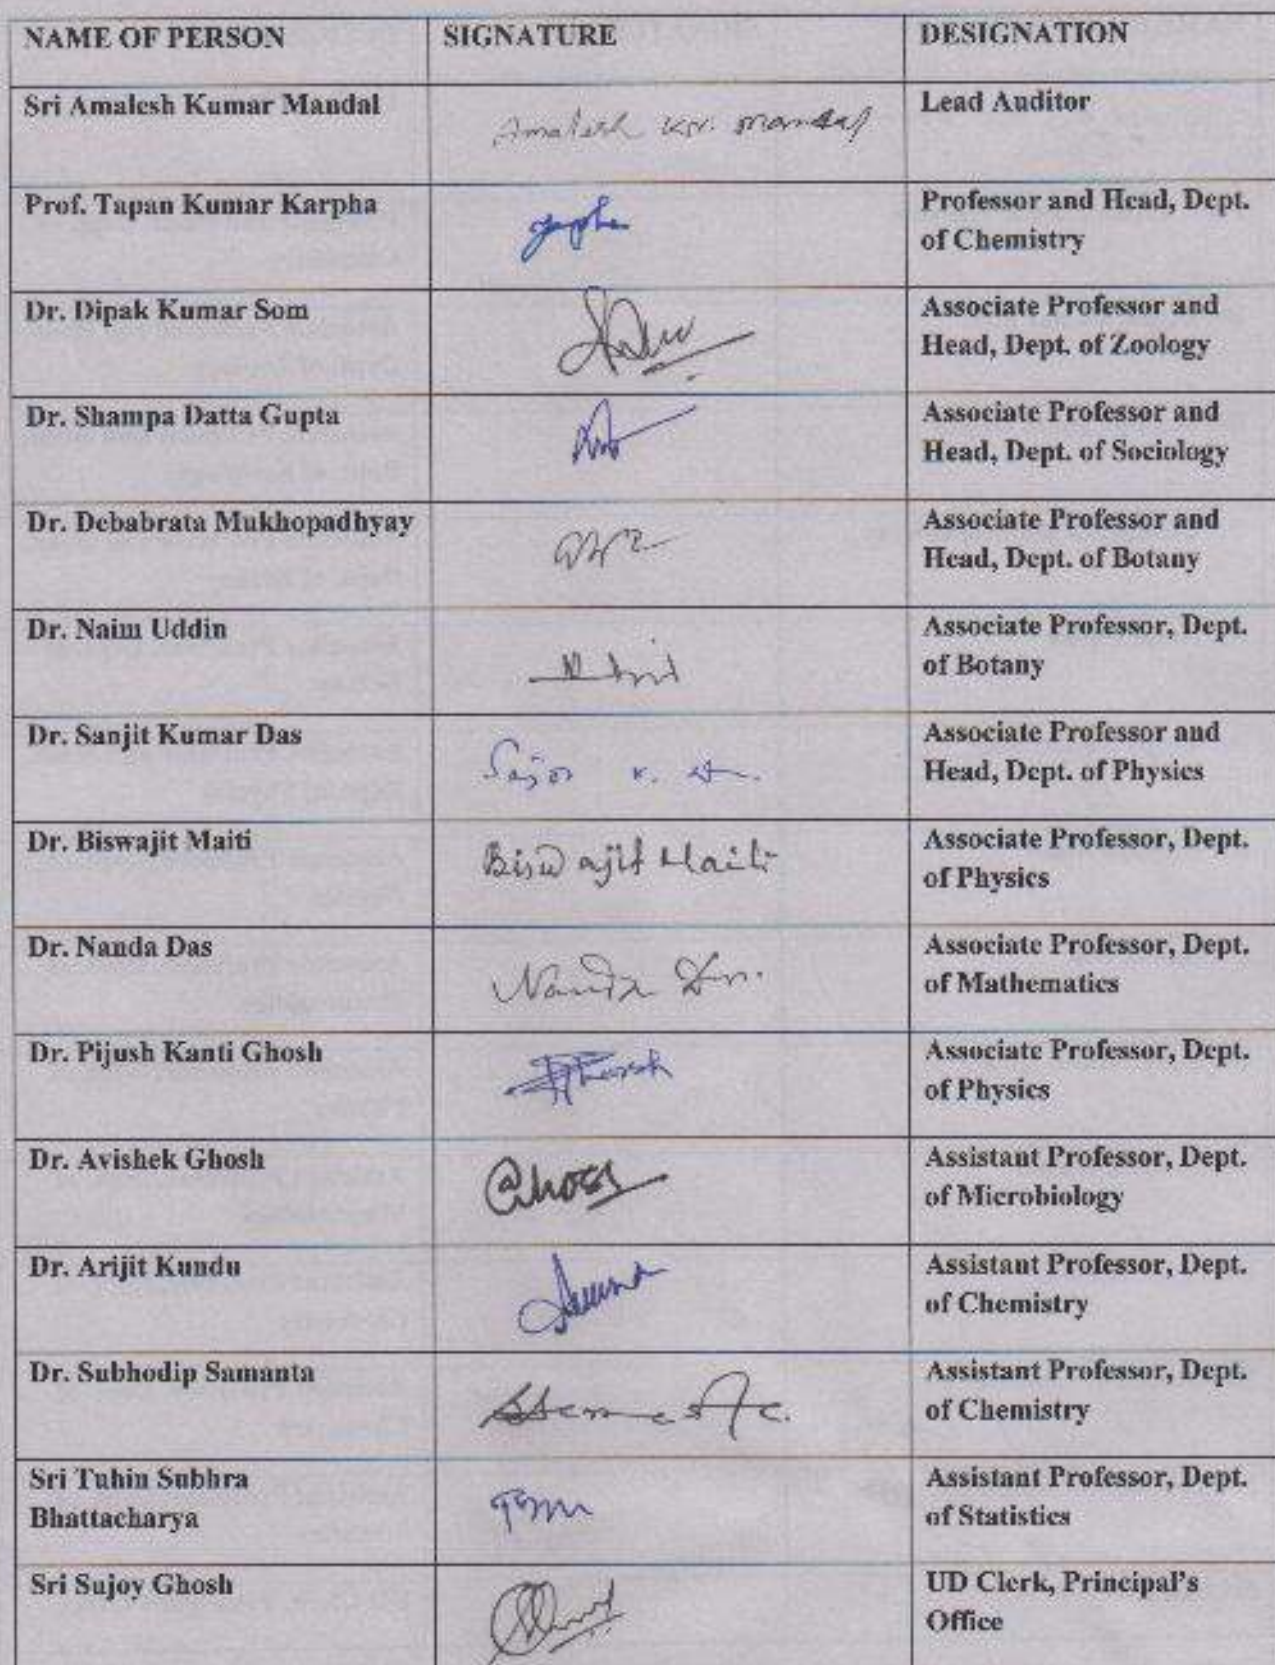 NAME OF PERSON SIGNATURE DESIGNATION
Sri Amalesh Kumar Mandal Amalesh Kr. Mandal Lead Auditor
Prof. Tapan Kumar Karpha Professor and Head, Dept.
of Chemistry
Dr. Dipak Kumar Som Associate Professor and
Head, Dept. of Zoology
Dr. Shampa Datta Gupta Associate Professor and
Head, Dept. of Sociology
Dr. Debabrata Mukhopadhyay Associate Professor and
Head, Dept. of Botany
Dr. Naim Uddin Associate Professor, Dept.
of Botany
Dr. Sanjit Kumar Das Associate Professor and
Head, Dept. of Physics
Dr. Biswajit Maiti Biswajit Maiti Associate Professor, Dept.
of Physics
Dr. Nanda Das Nanda Das. Associate Professor, Dept.
of Mathematics
Dr. Pijush Kanti Ghosh Associate Professor, Dept.
of Physics
Dr. Avishek Ghosh Assistant Professor, Dept.
of Microbiology
Dr. Arijit Kundu Assistant Professor, Dept.
of Chemistry
Dr. Subhodip Samanta Assistant Professor, Dept.
of Chemistry
Sri Tuhin Subhra Assistant Professor, Dept.
Bhattacharya of Statistics
Sri Sujoy Ghosh UD Clerk, Principal's
Office